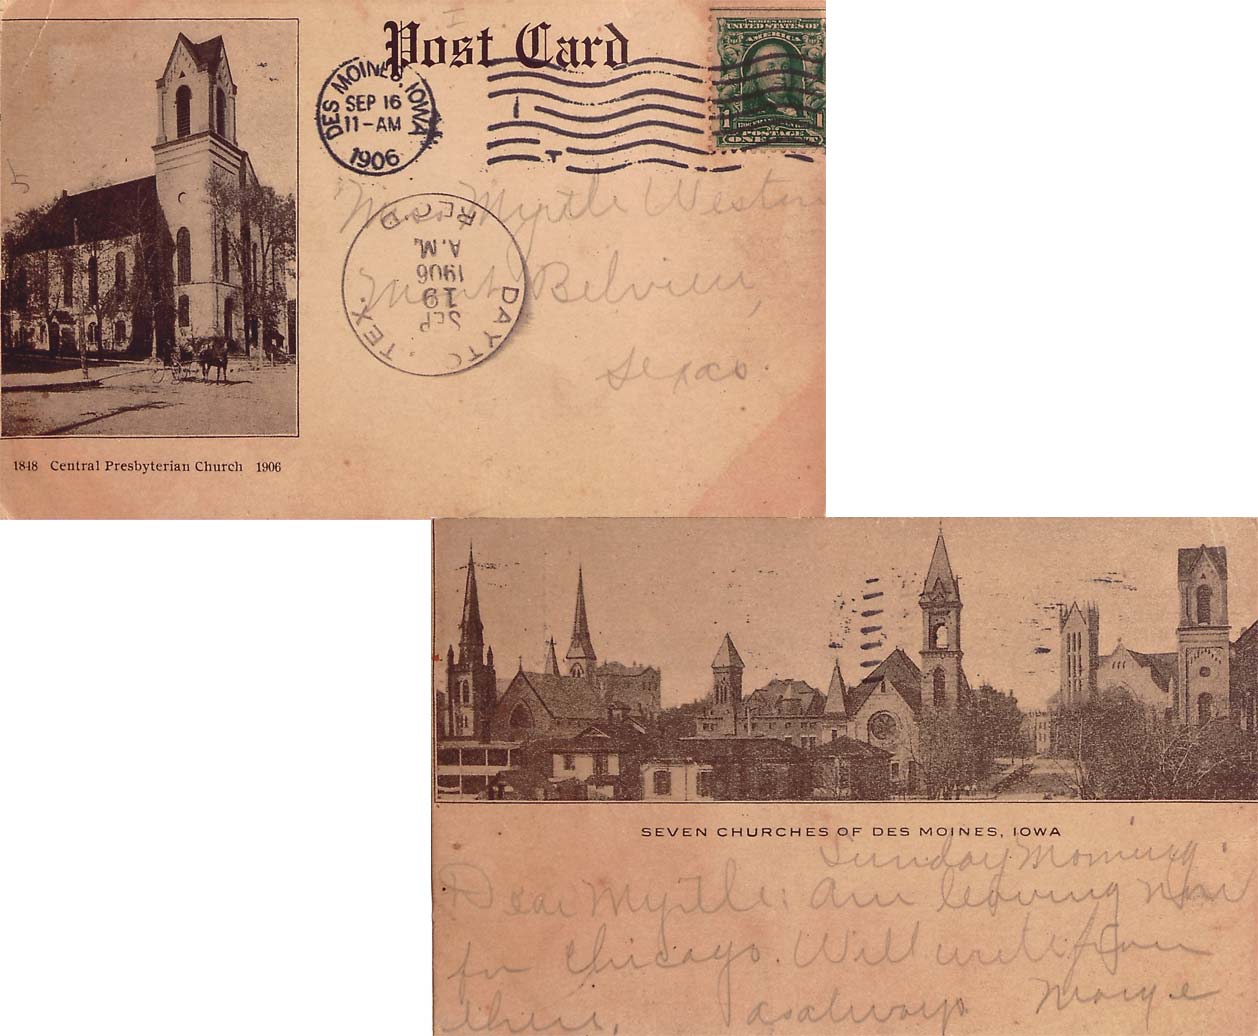 Post Card
DES MOINES, IOWA
SEP 16
11-AM
1906
SERIES 1902
UNITED STATES OF
AMERICA
1 POSTAGE 1
ONE CENT
Miss Myrtle Weston
Mont Belvieu,
Texas.
REC'D
A.M.
1906
19
SEP
DAYTO TEX.
1848 Central Presbyterian Church 1906
SEVEN CHURCHES OF DES MOINES, IOWA
Sunday Morning.
Dear Myrtle: Am leaving now
for Chicago. Will write from
there. as always Margie